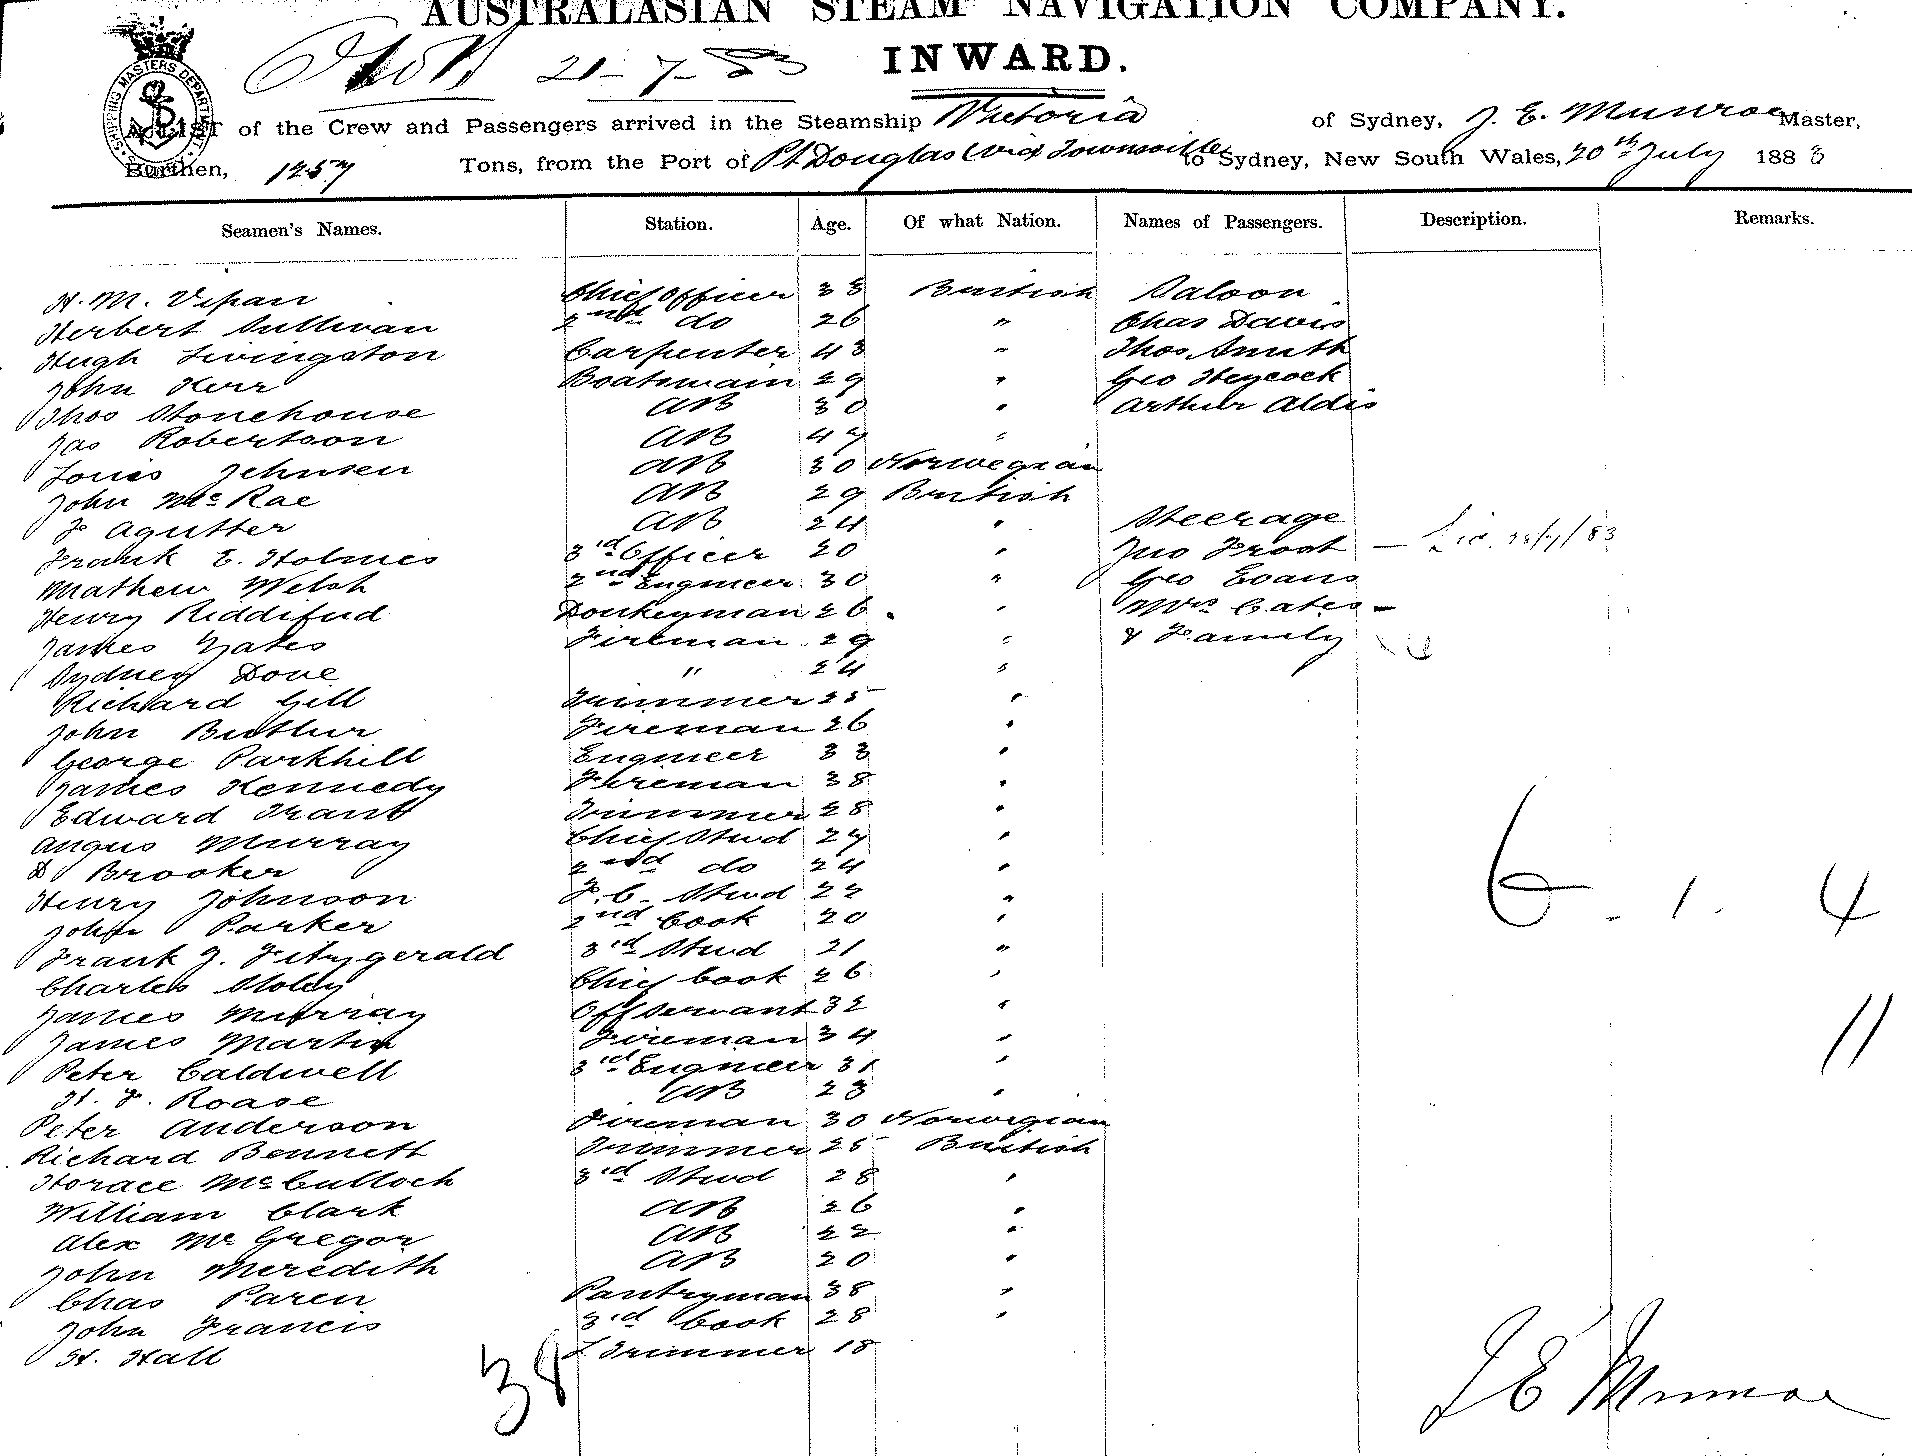 AUSTRALASIAN STEAM NAVIGATION COMPANY.
21-7-83 INWARD.
SHIPPING MASTERS DEPARTMENT
A LIST of the Crew and Passengers arrived in the Steamship Victoria of Sydney, J. E. Munroe Master,
Burthen, 1257 Tons, from the Port of Pt Douglas (via Townsville to Sydney, New South Wales, 20th July 1883
Seamen's Names. Station. Age. Of what Nation. Names of Passengers. Description. Remarks.
H. M. Vipan Chief Officer 33 British Saloon
Herbert Sullivan 2nd do 26 " Chas Davis
Hugh Livingston Carpenter 43 " Thos Smith
John Kerr Boatswain 29 " Geo Heycock
Thos Stonehouse AB 30 " Arthur Aldis
Jas Robertson AB 47 "
Louis Johnsen AB 30 Norwegian
John McRae AB 29 British
F Agutter AB 24 " Steerage
Frank E. Holmes 3rd Officer 20 " Jno Frost —
Mathew Welsh 2nd Engineer 30 " Geo Evans
Henry Riddifud Donkeyman 26 " Mrs Cates —
James Yates Fireman 29 " & Family
Sydney Dove " 24 "
Richard Gill Trimmer 25 "
John Butlur Fireman 26 "
George Parkhill Engineer 33 "
James Kennedy Fireman 38 "
Edward Grant Trimmer 28 "
Angus Murray Chief Stwd 27 "
D Brooker 2nd do 24 " 6 . 1 . 4
Henry Johnson F.C. Stwd 22 "
John Parker 2nd Cook 20 "
Frank J. Fitzgerald 3rd Stwd 21 "
Charles Stoley Chief Cook 26 "
James Murray Off Servant 32 " 11
James Martin Fireman 34 "
Peter Caldwell 3rd Engineer 31 "
H. F. Roase AB 23 "
Peter Anderson Fireman 30 Norwegian
Richard Bennett Trimmer 25 British
Horace McCulloch 3rd Stwd 28 "
William Clark AB 26 "
Alex McGregor AB 22 "
John Meredith AB 20 "
Chas Paren Pantryman 38 "
John Francis 3rd Cook 28 "
H. Hall Trimmer 18
38
J E Munroe